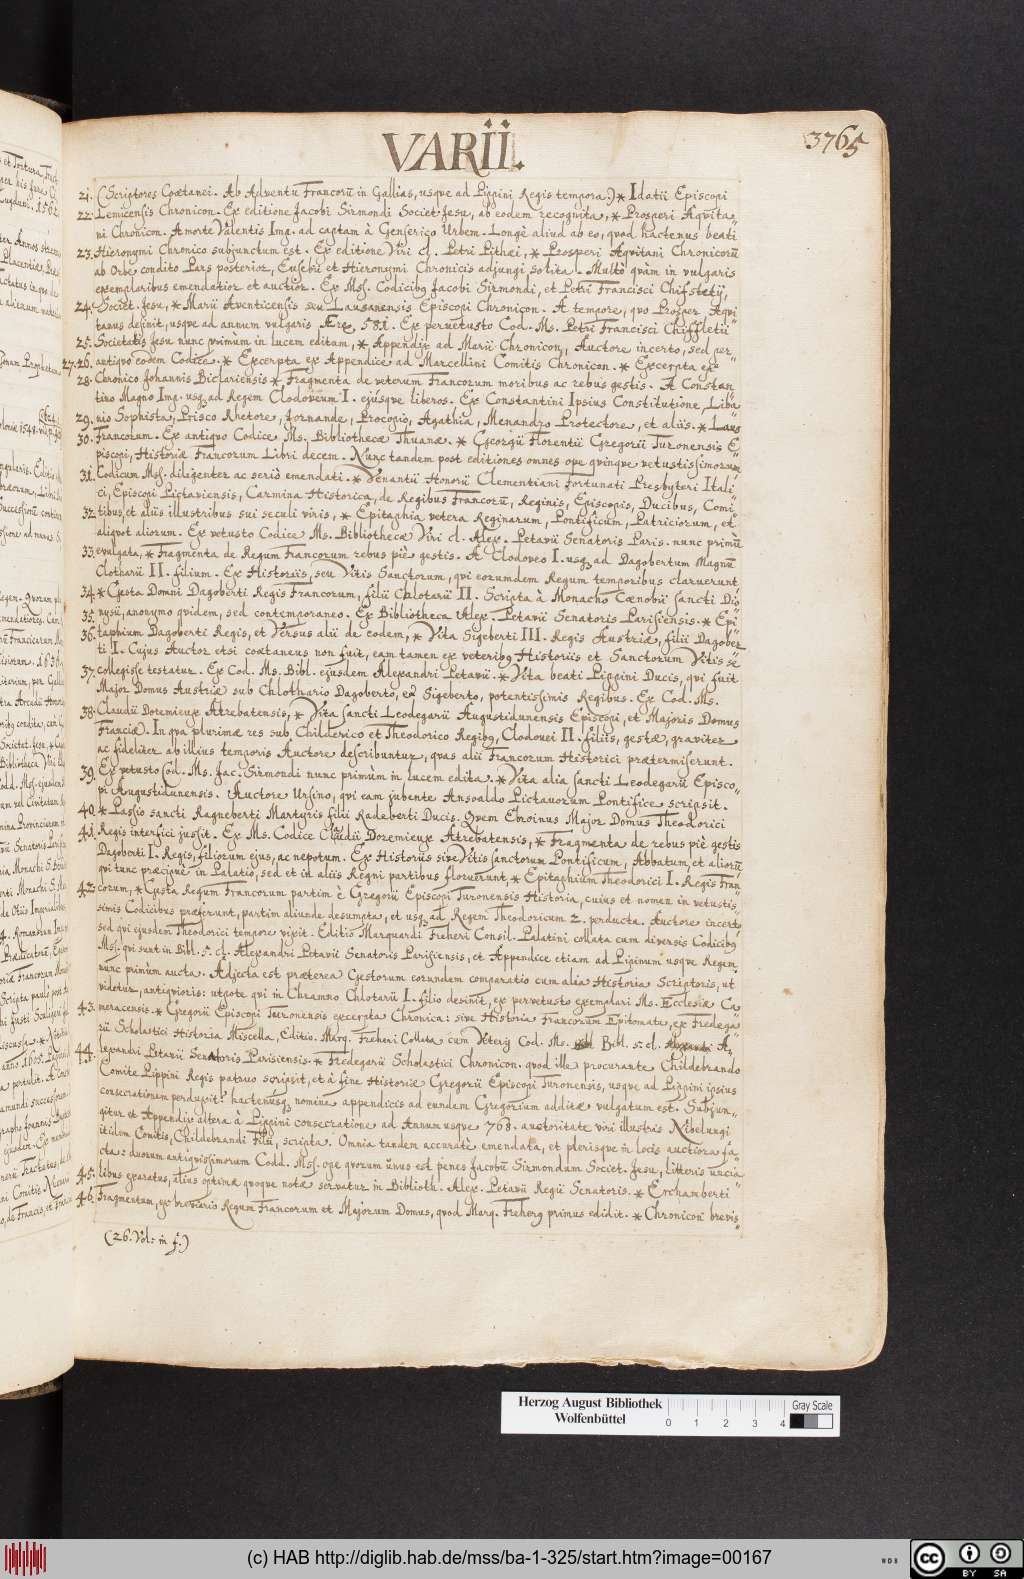 VARII.
3765
21. (Scriptores Coætanei. Ab Adventu Francorū in Gallias, usque ad Pippini Regis tempora.) * Idatii Episcopi
22. Lemicensis Chronicon. Ex editione Jacobi Sirmondi Societ Jesu, ab eodem recognita, * Prosperi Aqvita„
ni Chronicon. A morte Valentis Imp. ad captam à Genserico Urbem. Longè aliud ab eo, quod hactenus beati
23. Hieronymi Chronico subjunctum est. Ex editione Viri cl. Petri Pithæi, * Prosperi Aqvitani Chronicorū
ab Orbe condito Pars posterior, Eusebii et Hieronymi Chronicis adjungi solita. Multò qvàm in vulgaris
exemplaribus emendatior et auctior. Ex Mss. Codicibꝫ Jacobi Sirmondi, et Petri Francisci Chifstetij,
24. Societ. Jesu, * Marii Aventicensis seu Lausanensis Episcopi Chronicon. A tempore, qvo Prosper Aqvi„
tanus desinit, usque ad annum vulgaris Æræ, 581. Ex pervetusto Cod. Ms. Petri Francisci Chiffletii
25. Societatis Jesu nunc primùm in lucem editam, * Appendix ad Marii Chronicon, Auctore incerto, sed per„
27. 26. antiqvo eodem Codice. * Excerpta ex Appendice ad Marcellini Comitis Chronicon. * Excerpta ex
28. Chronico Johannis Biclariensis * Fragmenta de veterum Francorum moribus ac rebus gestis. A Constan„
tino Magno Imp. usqꝫ ad Regem Clodoveum I. ejúsque liberos. Ex Constantini Ipsius Constitutione, Liba„
29. nio Sophista, Prisco Rhetore, Jornande, Procopio, Agathia, Menandro Protectore, et aliis. * Laus
30. Francorum. Ex antiqvo Codice Ms. Bibliothecæ Thuanæ. * Georgii Florentii Gregorii Turonensis E„
piscopi, Historiæ Francorum Libri decem. Nunc tandem post editiones omnes ope qvinque vetustissimorum
31. Codicum Mss. diligenter ac seriò emendati. * Venantii Honorii Clementiani Fortunati Presbyteri Itali„
ci, Episcopi Pictaviensis, Carmina Historica, de Regibus Francorū, Reginis, Episcopis, Ducibus, Comi„
32. tibus, et aliis illustribus sui seculi viris, * Epitaphia vetera Reginarum, Pontificum, Patriciorum, et
aliqvot aliorum. Ex vetusto Codice Ms. Bibliothecæ Viri cl. Alex. Petavii Senatoris Paris. nunc primū
33. evulgata, * Fragmenta de Regum Francorum rebus piè gestis. A Clodoveo I. usqꝫ ad Dagobertum Magnū
Clotharii II. filium. Ex Historiis, seu Vitis Sanctorum, qvi eorumdem Regum temporibus claruerunt
34. * Gesta Domni Dagoberti Regis Francorum, filii Chlotarii II. Scripta à Monacho Cœnobii sancti Dio„
35. nysii, anonymo qvidem, sed contemporaneo. Ex Bibliotheca Alex. Petavii Senatoris Parisiensis. * Epi„
36. taphium Dagoberti Regis, et Versus alii de eodem, * Vita Sigeberti III. Regis Austriæ, filii Dagober„
ti I. Cujus Auctor etsi coætaneus non fuit, eam tamen ex veteribꝫ Historiis et Sanctorum Vitis se
37. collegisse testatur. Ex Cod. Ms. Bibl. ejusdem Alexandri Petavii. * Vita beati Pippini Ducis, qvi fuit
Major Domus Austriæ sub Chlothario Dagoberto, et Sigeberto, potentissimis Regibus. Ex Cod. Ms.
38. Claudii Doremieux Atrebatensis, * Vita sancti Leodegarii Augustidunensis Episcopi, et Majoris Domus
Franciæ. In qva plurimæ res sub Childerico et Theodorico Regibꝫ, Clodovei II. filiis, gestæ, graviter
ac fideliter ab illius temporis Auctore describuntur, qvas alii Francorum Historici prætermiserunt.
39. Ex vetusto Cod. Ms. Jac. Sirmondi nunc primùm in lucem edita. * Vita alia sancti Leodegarii Episco„
pi Augustidunensis. Auctore Ursino, qvi eam jubente Ansoaldo Pictavorum Pontifice scripsit.
40. * Passio sancti Ragneberti Martyris filii Radeberti Ducis. Qvem Ebroinus Major Domus Theodorici
41. Regis interfici jussit. Ex Ms. Codice Claudii Doremieux Atrebatensis, * Fragmenta de rebus piè gestis
Dagoberti I. Regis, filiorum ejus, ac nepotum. Ex Historiis sive Vitis sanctorum Pontificum, Abbatum, et aliorū
qvi tunc præcipuè in Palatio, sed et in aliis Regni partibus floruerunt, * Epitaphium Theodorici I. Regis Fran„
42. corum, * Gesta Regum Francorum partim è Gregorii Episcopi Turonensis Historia, cuius et nomen in vetustis„
simis Codicibus præferunt, partim aliunde desumptas, et usqꝫ ad Regem Theodoricum 2. perducta. Auctore incerto
sed qvi ejusdem Theodorici tempore vixit. Editio Marquardi Freheri Consil. Palatini collata cum diversis Codicibꝫ
Mss. qvi sunt in Bibl. 5. cl. Alexandri Petavii Senatoris Parisiensis, et Appendice etiam ad Pipinum usque Regem
nunc primùm aucta. Adjecta est præterea Gestorum eorundem comparatio cum alia Historia Scriptoris, ut
videtur, antiqvioris: utpote qvi in Chramno Chlotarii I. filio desinit, ex pervetusto exemplari Ms. Ecclesiæ Ca„
43. meracensis. * Gregorii Episcopi Turonensis excerpta Chronica: sive Historia Francorum Epitomata, ex Fredega„
rii Scholastici Historia Miscella, Editio. Marq. Freheri Collata cum Veterij Cod. Ms. Bibl. 5. cl. A„
44. lexandri Petavii Senatoris Parisiensis. * Fredegarii Scholastici Chronicon, quod ille procurante Childebrando
Comite Pippini Regis patruo scripsit, et à fine Historiæ Gregorii Episcopi Turonensis, usque ad Pippini ipsius
consecrationem perduxit: hactenusqꝫ nomine appendicis ad eundem Gregorium additæ vulgatum est. Subjun„
gitur et Appendix altera à Pippini consecratione ad Annum usque 768. auctoritate viri illustris Nibelungi
itidem Comitis, Childebrandi Filii, scripta. Omnia tandem accuratè emendata, et plerisque in locis auctiora fa„
cta: duorum antiqvissimorum Codd. Mss. ope qvorum unus est penes Jacobū Sirmondum Societ. Jesu, litteris uncia„
45. libus exaratus, alius optimæ qvoque notæ servatur in Biblioth. Alex. Petavii Regii Senatoris. * Erchamberti
46. Fragmentum, ex breviaris Regum Francorum et Majorum Domus, qvod Marq. Freherꝫ primus edidit. * Chronicon brevis„
(26. Vol: in f.)
Herzog August Bibliothek
Wolfenbüttel
0 1 2 3 4
Gray Scale
(c) HAB http://diglib.hab.de/mss/ba-1-325/start.htm?image=00167
WDB
cc BY SA